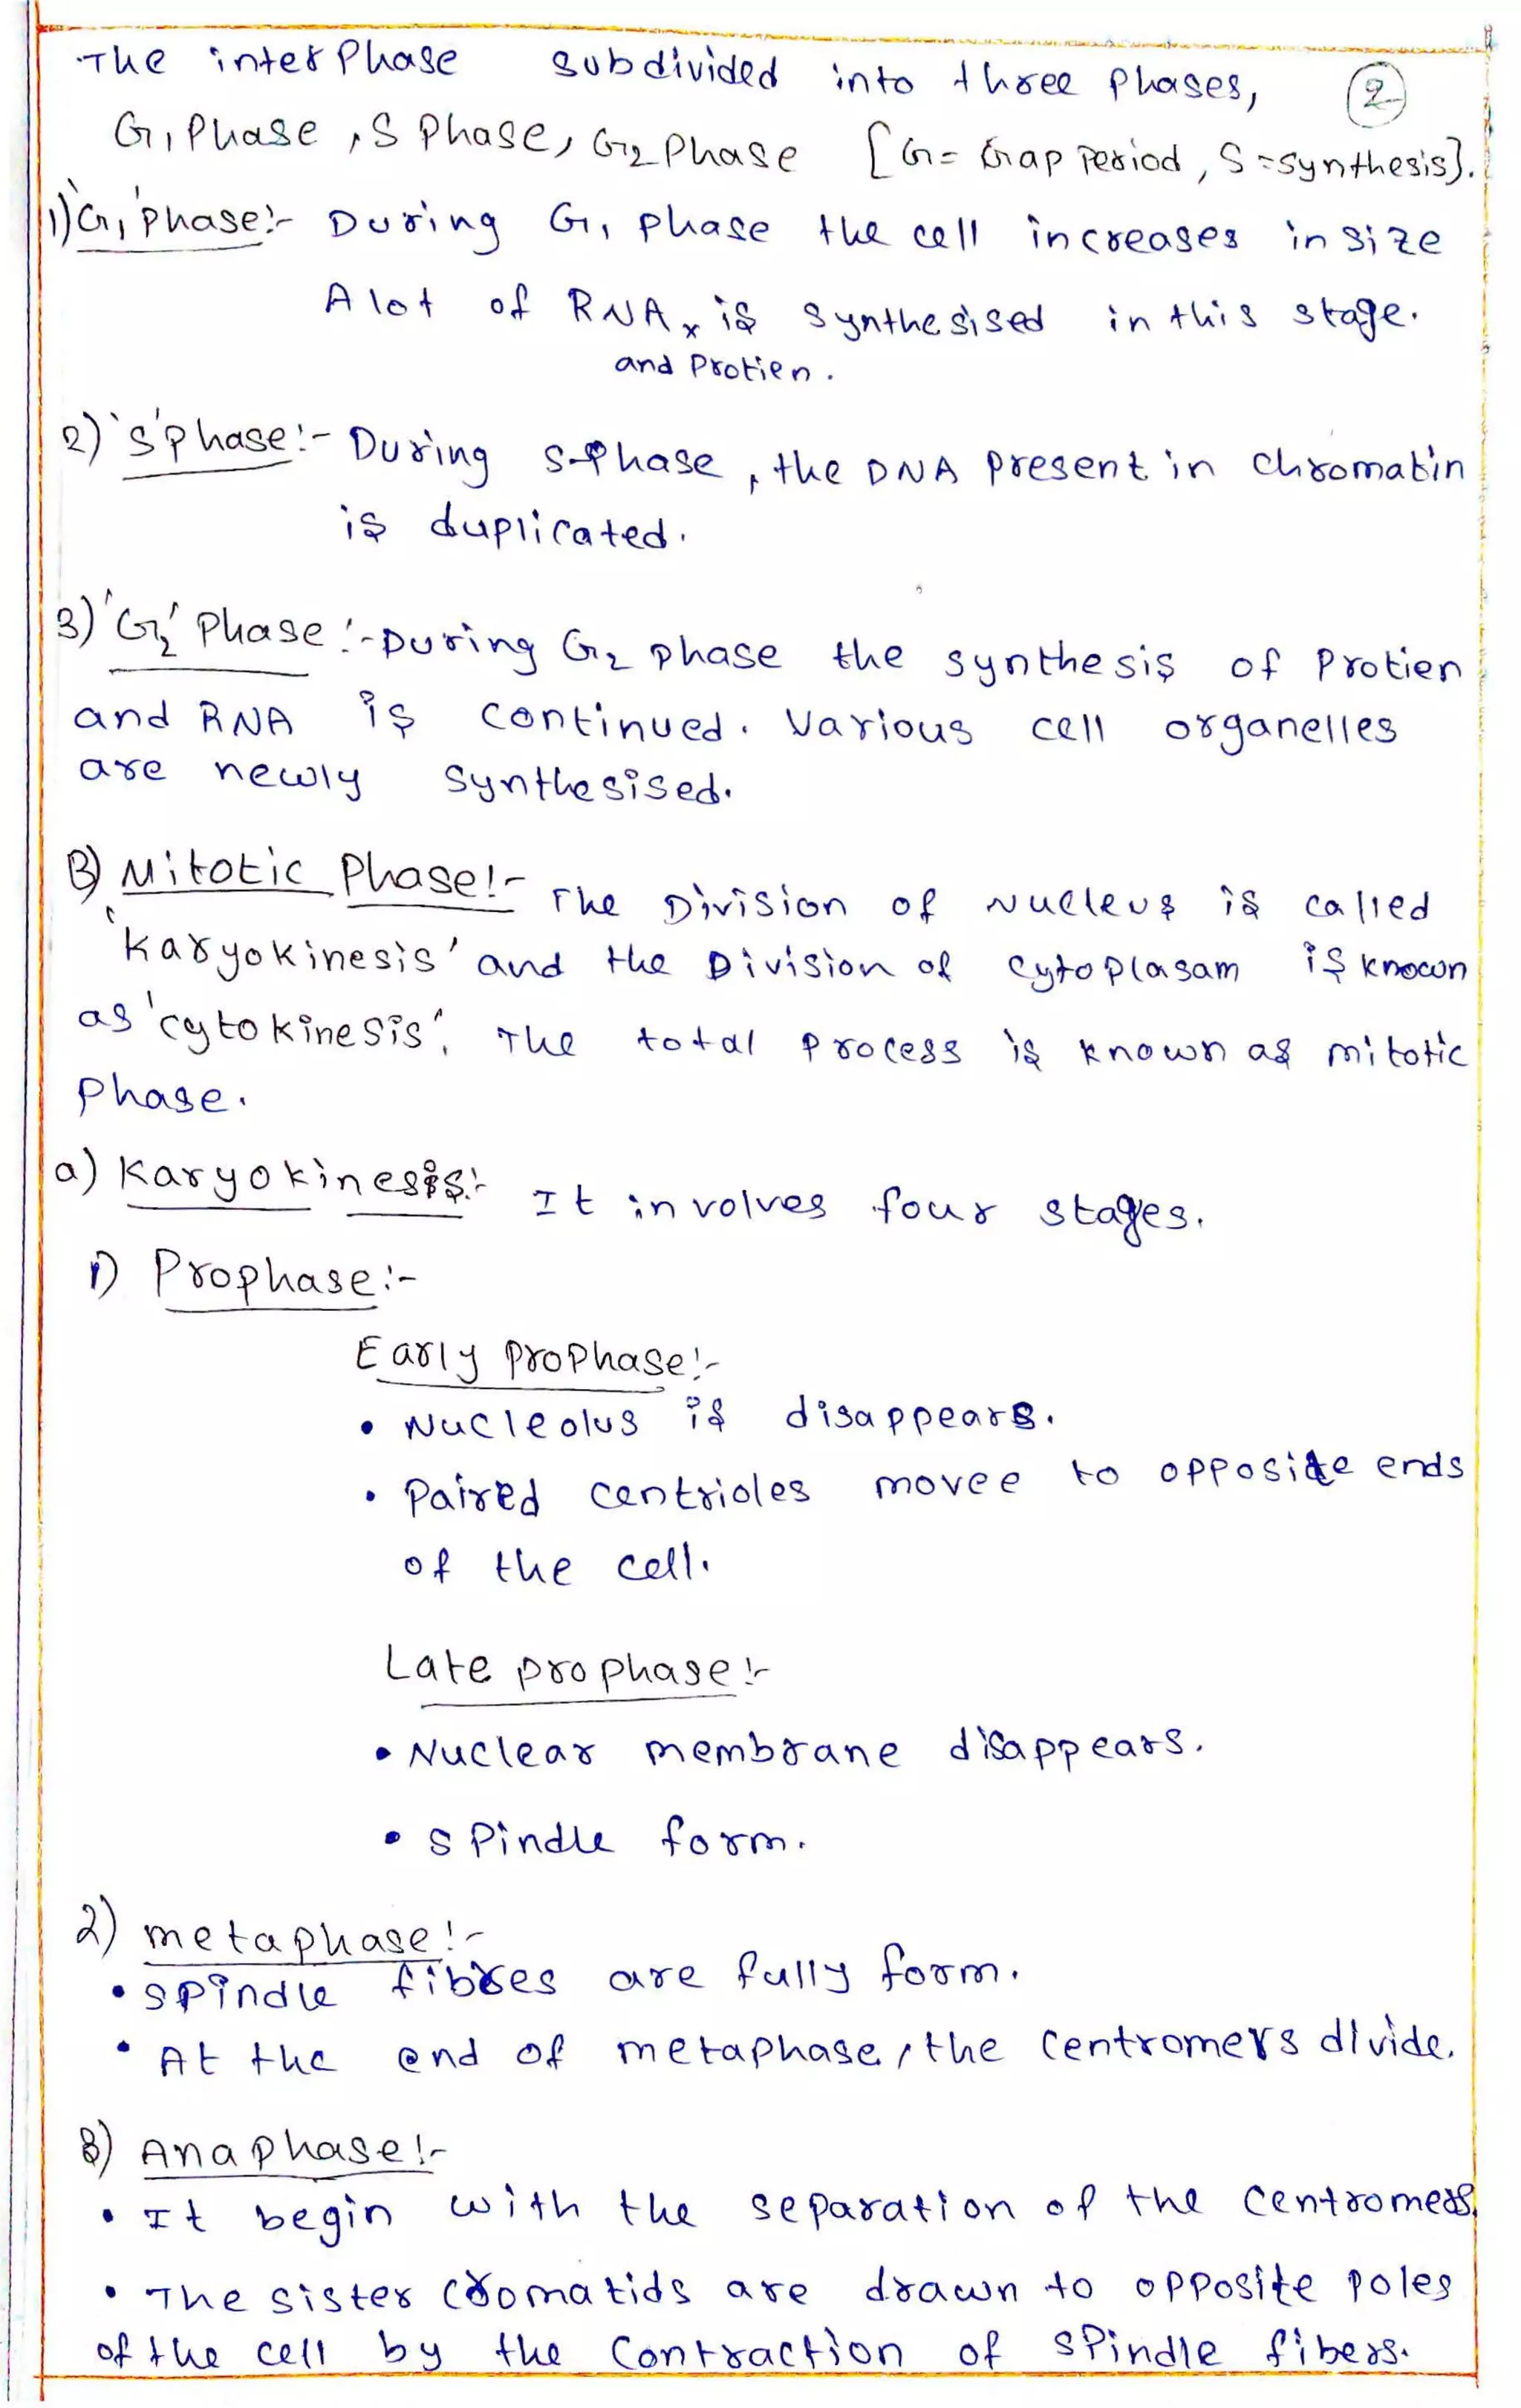 The interphase subdivided into three phases, 2
G1 Phase, S Phase, G2 Phase [G= Gap Period, S=synthesis].
1)'G1'Phase:- During G1 phase the cell increases in size
A lot of RNA x is synthesised in this stage.
and Protien.
2)'S'Phase:- During S-Phase, the DNA Present in chromatin
is duplicated.
3)'G2' Phase:- During G2 phase the synthesis of Protien
and RNA is continued. Various cell organelles
are newly synthesised.
B) Mitotic Phase:- The Division of Nucleus is called
'Karyokinesis' and the Division of cytoplasam is known
as 'cytokinesis'. The total process is known as mitotic
Phase.
a) Karyokinesis:- It involves four stages.
1) Prophase:-
Early prophase:-
• Nucleolus is disappears.
• Paired centrioles movee to opposite ends
of the cell.
Late prophase:-
• Nuclear membrane disappears.
• Spindle form.
2) metaphase:-
• Spindle fibres are fully form.
• At the end of metaphase, the centromers divide.
3) Anaphase:-
• It begin with the separation of the centromers.
• The sister cromatids are drawn to opposite poles
of the cell by the contraction of spindle fibers.